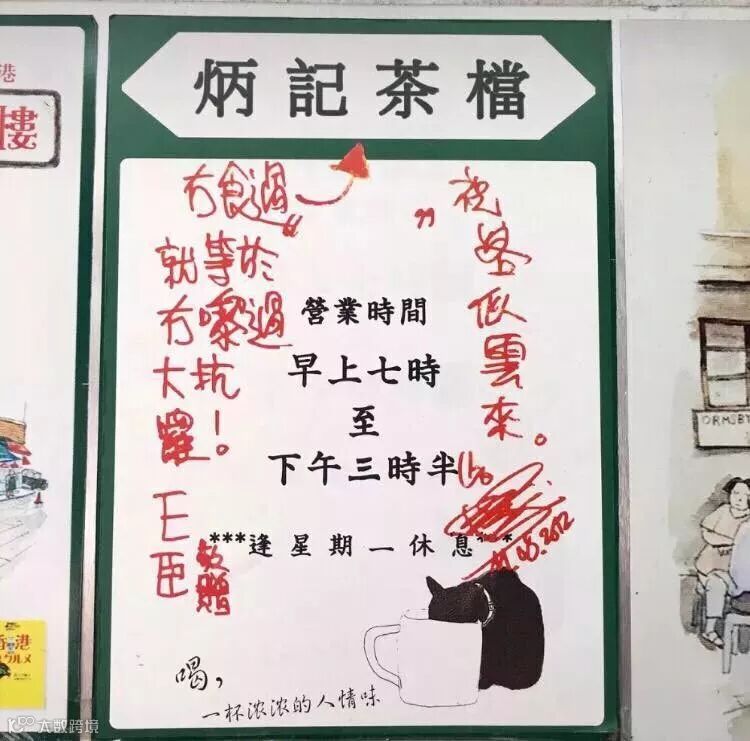 炳記茶檔
冇食過
"
就等於
冇嚟過
大坑
囉！
王
臣
敬贈
"
祝
客
似
雲
來。
營業時間
早上七時
至
下午三時半
11.05.2012
***逢星期一休息***
喝，
一杯浓浓的人情味
港
樓
港
グルメ
ORMSBY
大数跨境